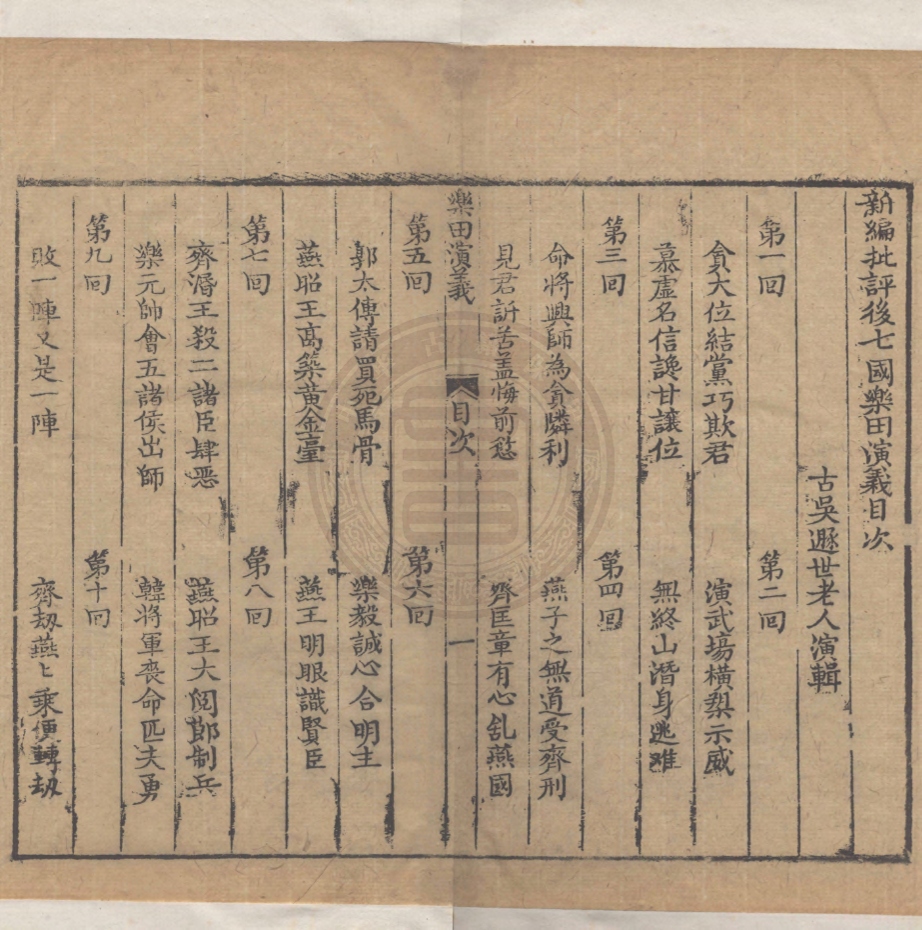 新編批評後七國樂田演義目次
古吳遯世老人演輯
第一回
第二回
貪大位結黨巧欺君
演武塲橫槊示威
慕虛名信讒甘讓位
無終山潛身逃难
第三回
第四回
命將興師為貪隣利
燕子之無道受齊刑
見君訢苦盖悔前愆
齊匡章有心乱燕國
樂田演義
目次
一
第五回
第六回
郭太傅請買死馬骨
樂毅誠心合明主
燕昭王高築黃金臺
燕王明眼識賢臣
第七回
第八回
齊湣王殺二諸臣肆惡
燕昭王大閱郎制兵
樂元帥會五諸侯出師
韓將軍喪命匹夫勇
第九回
第十回
敗一陣又是一陣
齊刼燕〻乘便轉刼